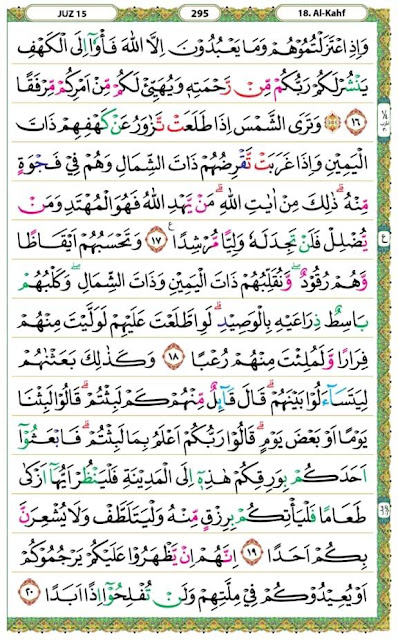 JUZ 15 295 18. Al-Kahf
وَاِذِ اعْتَزَلْتُمُوْهُمْ وَمَا يَعْبُدُوْنَ اِلَّا اللّٰهَ فَأْوٗٓا اِلَى الْكَهْفِ
يَنْشُرْ لَكُمْ رَبُّكُمْ مِّنْ رَّحْمَتِهٖ وَيُهَيِّئْ لَكُمْ مِّنْ اَمْرِكُمْ مِّرْفَقًا
١٦ ۞ وَتَرَى الشَّمْسَ اِذَا طَلَعَتْ تَّزٰوَرُ عَنْ كَهْفِهِمْ ذَاتَ
الْيَمِيْنِ وَاِذَا غَرَبَتْ تَّقْرِضُهُمْ ذَاتَ الشِّمَالِ وَهُمْ فِيْ فَجْوَةٍ
مِّنْهُۗ ذٰلِكَ مِنْ اٰيٰتِ اللّٰهِۗ مَنْ يَّهْدِ اللّٰهُ فَهُوَ الْمُهْتَدِ وَمَنْ
يُّضْلِلْ فَلَنْ تَجِدَ لَهٗ وَلِيًّا مُّرْشِدًا ࣖ ١٧ وَتَحْسَبُهُمْ اَيْقَاظًا
وَّهُمْ رُقُوْدٌ ۖوَّنُقَلِّبُهُمْ ذَاتَ الْيَمِيْنِ وَذَاتَ الشِّمَالِ ۖوَكَلْبُهُمْ
بَاسِطٌ ذِرَاعَيْهِ بِالْوَصِيْدِۗ لَوِ اطَّلَعْتَ عَلَيْهِمْ لَوَلَّيْتَ مِنْهُمْ
فِرَارًا وَّلَمُلِئْتَ مِنْهُمْ رُعْبًا ١٨ وَكَذٰلِكَ بَعَثْنٰهُمْ
لِيَتَسَاۤءَلُوْا بَيْنَهُمْۗ قَالَ قَاۤىِٕلٌ مِّنْهُمْ كَمْ لَبِثْتُمْۗ قَالُوْا لَبِثْنَا
يَوْمًا اَوْ بَعْضَ يَوْمٍۗ قَالُوْا رَبُّكُمْ اَعْلَمُ بِمَا لَبِثْتُمْۗ فَابْعَثُوْٓا
اَحَدَكُمْ بِوَرِقِكُمْ هٰذِهٖٓ اِلَى الْمَدِيْنَةِ فَلْيَنْظُرْ اَيُّهَآ اَزْكٰى
طَعَامًا فَلْيَأْتِكُمْ بِرِزْقٍ مِّنْهُ وَلْيَتَلَطَّفْ وَلَا يُشْعِرَنَّ
بِكُمْ اَحَدًا ١٩ اِنَّهُمْ اِنْ يَّظْهَرُوْا عَلَيْكُمْ يَرْجُمُوْكُمْ
اَوْ يُعِيْدُوْكُمْ فِيْ مِلَّتِهِمْ وَلَنْ تُفْلِحُوْٓا اِذًا اَبَدًا ٢٠